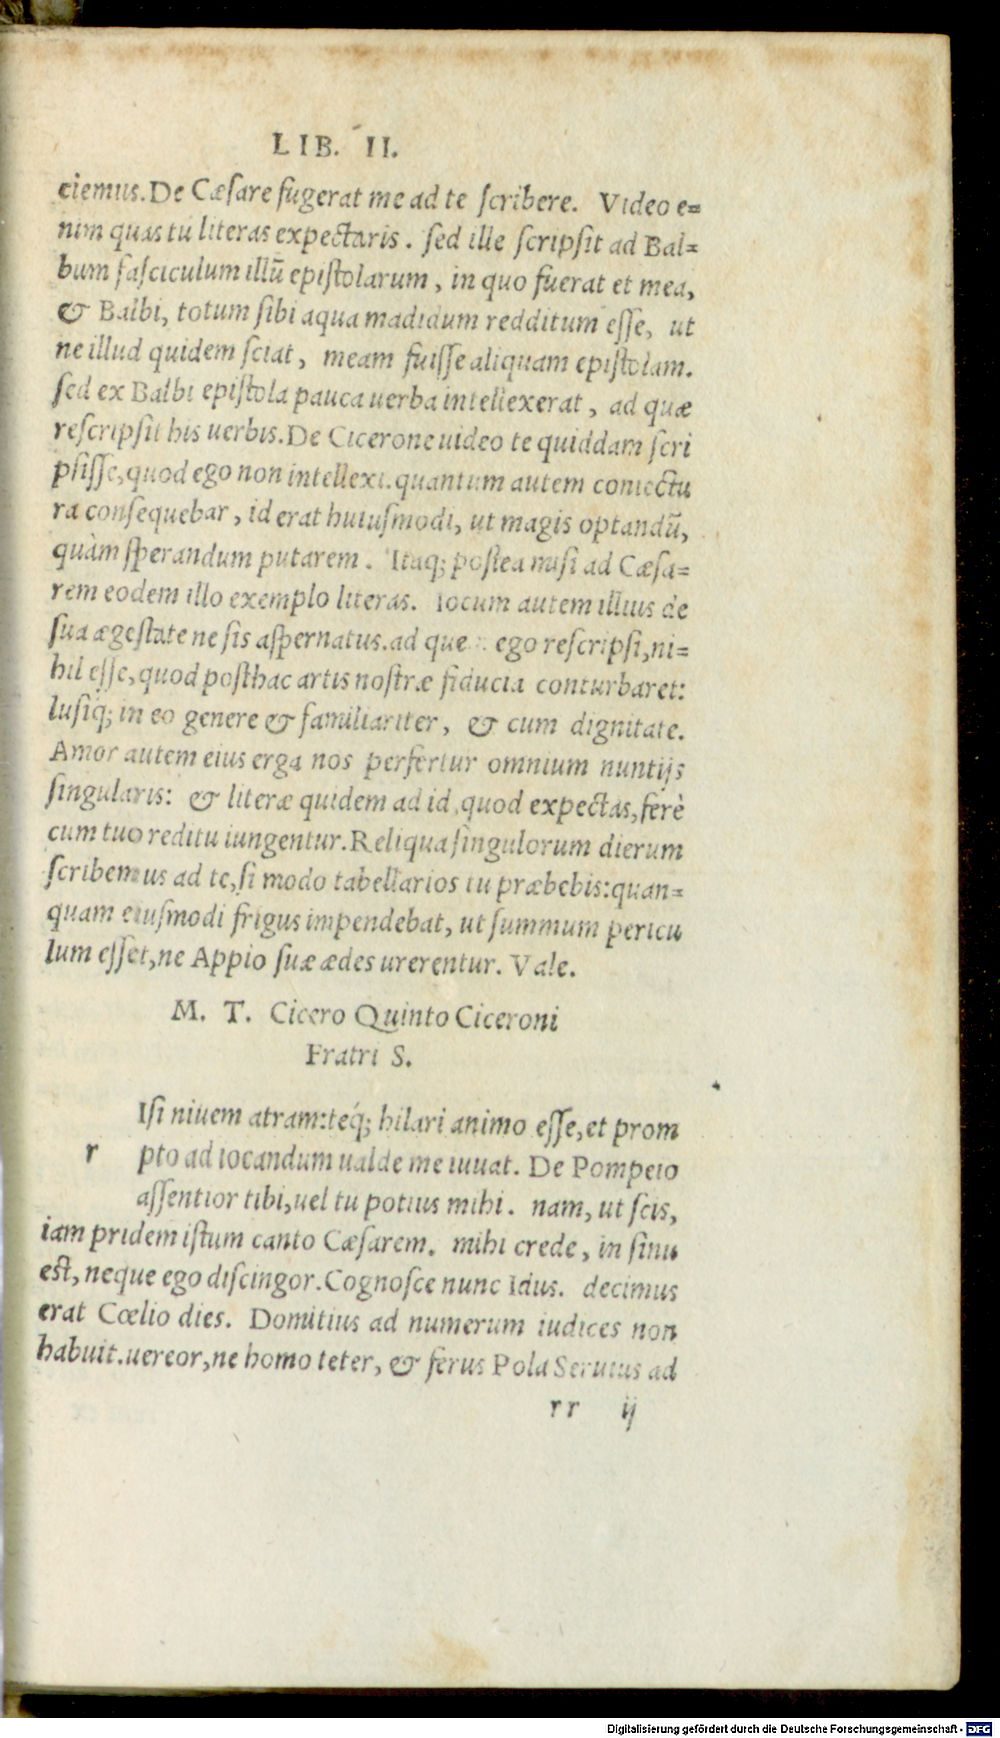 LIB. II.
ciemus. De Cæſare fugerat me ad te ſcribere. Video e=
nim quas tu literas expectaris. ſed ille ſcripſit ad Bal=
bum faſciculum illũ epiſtolarum, in quo fuerat et mea,
& Balbi, totum ſibi aqua madidum redditum eſſe, ut
ne illud quidem ſciat, meam fuiſſe aliquam epiſtolam.
ſed ex Balbi epiſtola pauca uerba intellexerat, ad quæ
reſcripſit his uerbis. De Cicerone uideo te quiddam ſcri
pſiſſe, quod ego non intellexi. quantum autem coniectu
ra conſequebar, id erat huiuſmodi, ut magis optandũ,
quàm ſperandum putarem. Itaq; poſtea miſi ad Cæſa=
rem eodem illo exemplo literas. Iocum autem illius de
ſua ægeſtate ne ſis aſpernatus. ad que ego reſcripſi, ni=
hil eſſe, quod poſthac artis noſtræ fiducia conturbaret:
luſiq; in eo genere & familiariter, & cum dignitate.
Amor autem eius erga nos perfertur omnium nuntijs
ſingularis: & literæ quidem ad id, quod expectas, ferè
cum tuo reditu iungentur. Reliqua ſingulorum dierum
ſcribemus ad te, ſi modo tabellarios tu præbebis: quan=
quam eiuſmodi frigus impendebat, ut ſummum pericu
lum eſſet, ne Appio ſuæ ædes urerentur. Vale.
M. T. Cicero Quinto Ciceroni
Fratri S.
r Iſi niuem atram: teq́; hilari animo eſſe, et prom
pto ad iocandum ualde me iuuat. De Pompeio
aſſentior tibi, uel tu potius mihi. nam, ut ſcis,
iam pridem iſtum canto Cæſarem. mihi crede, in ſinu
eſt, neque ego diſcingor. Cognoſce nunc Idus. decimus
erat Cœlio dies. Domitius ad numerum iudices non
habuit. uereor, ne homo teter, & ferus Pola Seruius ad
rr ij
Digitalisierung gefördert durch die Deutsche Forschungsgemeinschaft - DFG